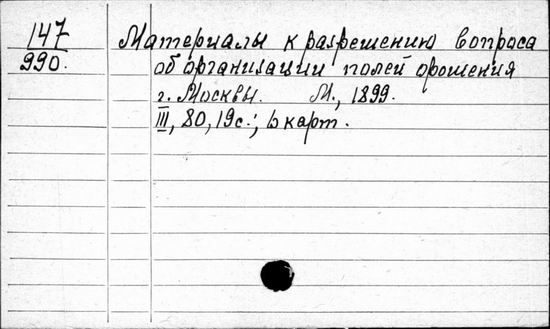 147
990.
Материалы к разрешению вопроса
об организации полей орошения
г. Москвы. М., 1899.
III, 80, 19 с.; 6 карт.